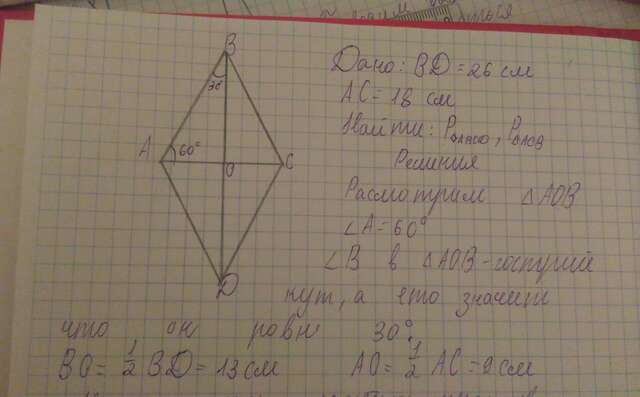 B
30°
A
60°
O
C
D
Дано: BD = 26 см
AC = 18 см
Найти: P
Решиния
Расмотрим △AOB
∠A = 60°
∠B в △AOB - гострий
кут, а ето значит
что он ровне 30°,
BO = 1/2 BD = 13 см AO = 1/2 AC = 9 см